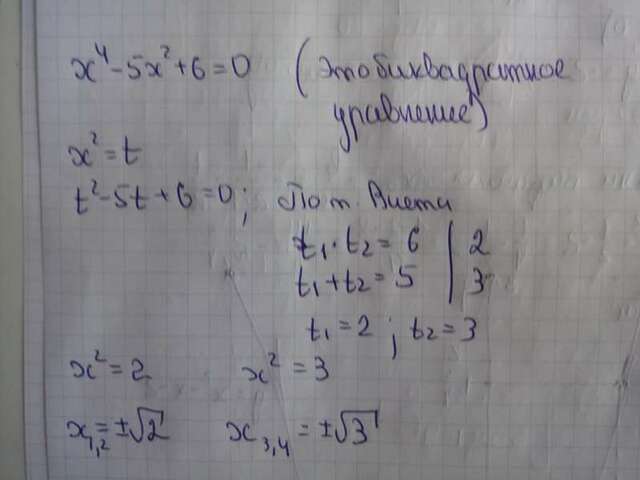 x⁴ - 5x² + 6 = 0 (это биквадратное
уравнение)
x² = t
t² - 5t + 6 = 0; По т. Виета
t₁ · t₂ = 6 | 2
t₁ + t₂ = 5 | 3
t₁ = 2 ; t₂ = 3
x² = 2 x² = 3
x₁,₂ = ±√2 x₃,₄ = ±√3